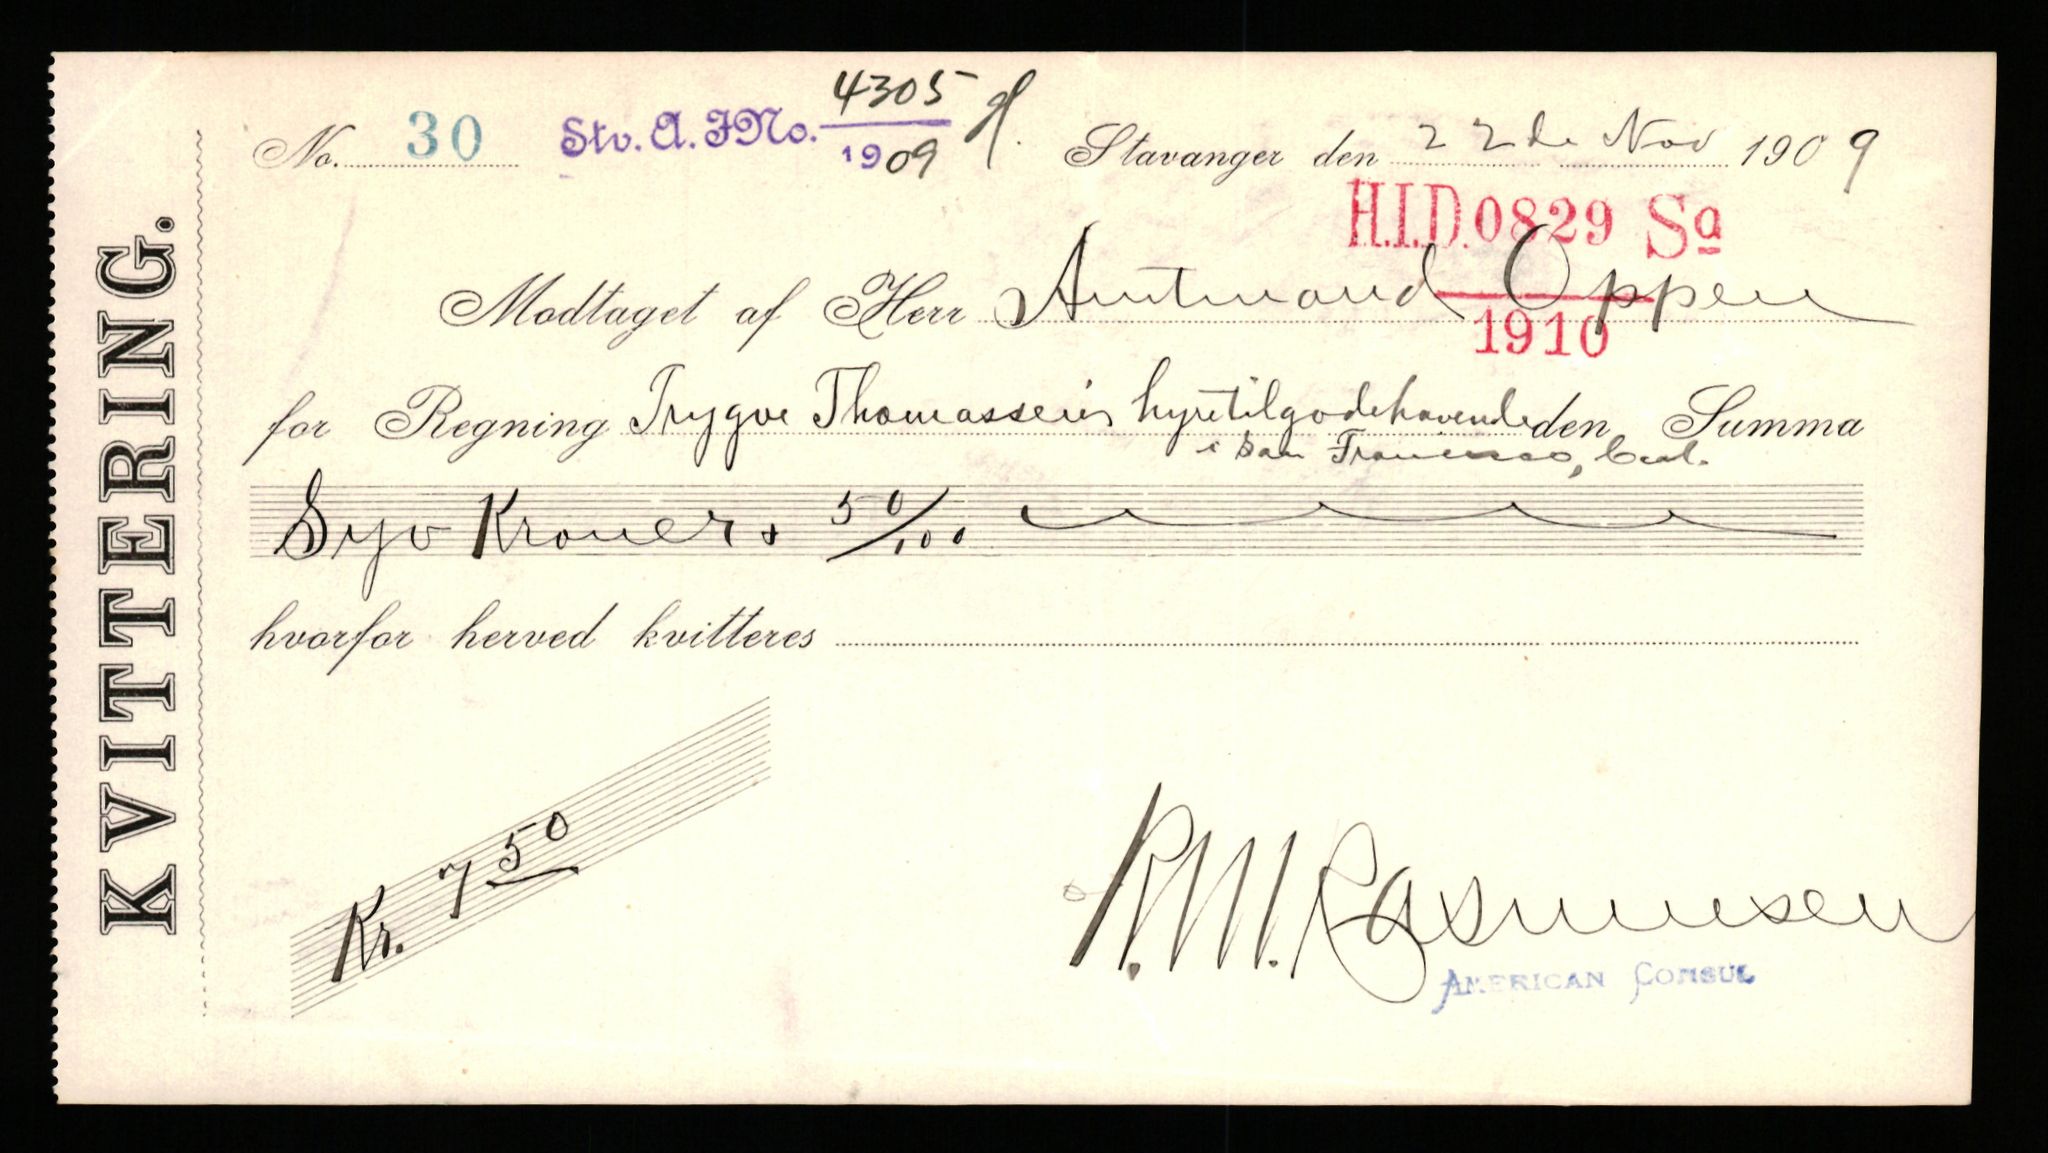 KVITTERING.
4305
No. 30 Stv. A. JNo. 1909 H. Stavanger den 22de Nov 1909
H.I.D. 0829 Sa
Modtaget af Herr Amtmand Oppen
1910
for Regning Trygve Thomassens hyretilgodehavende den Summa
i San Francisco, Cal.
Syv Kroner & 50/100
hvorfor herved kvitteres
Kr. 7 50
R.M. Rasmussen
AMERICAN CONSUL